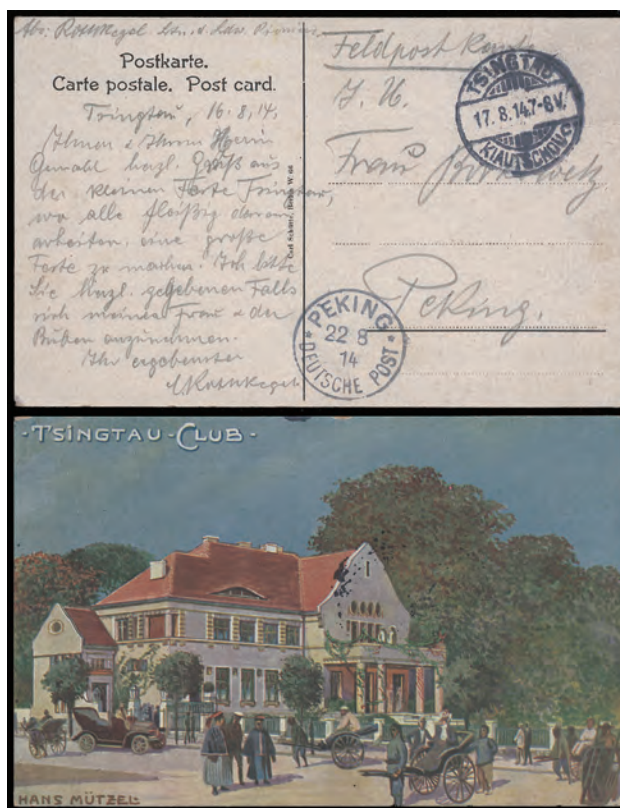 Abs: Rothkegel Ltn. d. Ldw. Pionier.
Postkarte.
Carte postale. Post card.
Tsingtau, 16.8.14.
Ihnen & Ihrem Herrn
Gemahl herzl. Gruß aus
der kleinen Feste Tsingtau,
wo alle fleißig daran
arbeiten, eine große
Feste zu machen. Ich bitte
Sie herzl. gegebenen Falls
sich meiner Frau & der
Buben anzunehmen.
Ihr ergebenster
CRothkegel
Carl Schütte, Berlin W. 66
Feldpost Karte
TSINGTAU
17.8.14.7-8V.
KIAUTSCHOU
I. H.
Frau
Peking.
PEKING
22 8
14
DEUTSCHE POST
-TSINGTAU-CLUB-
HANS MÜTZEL